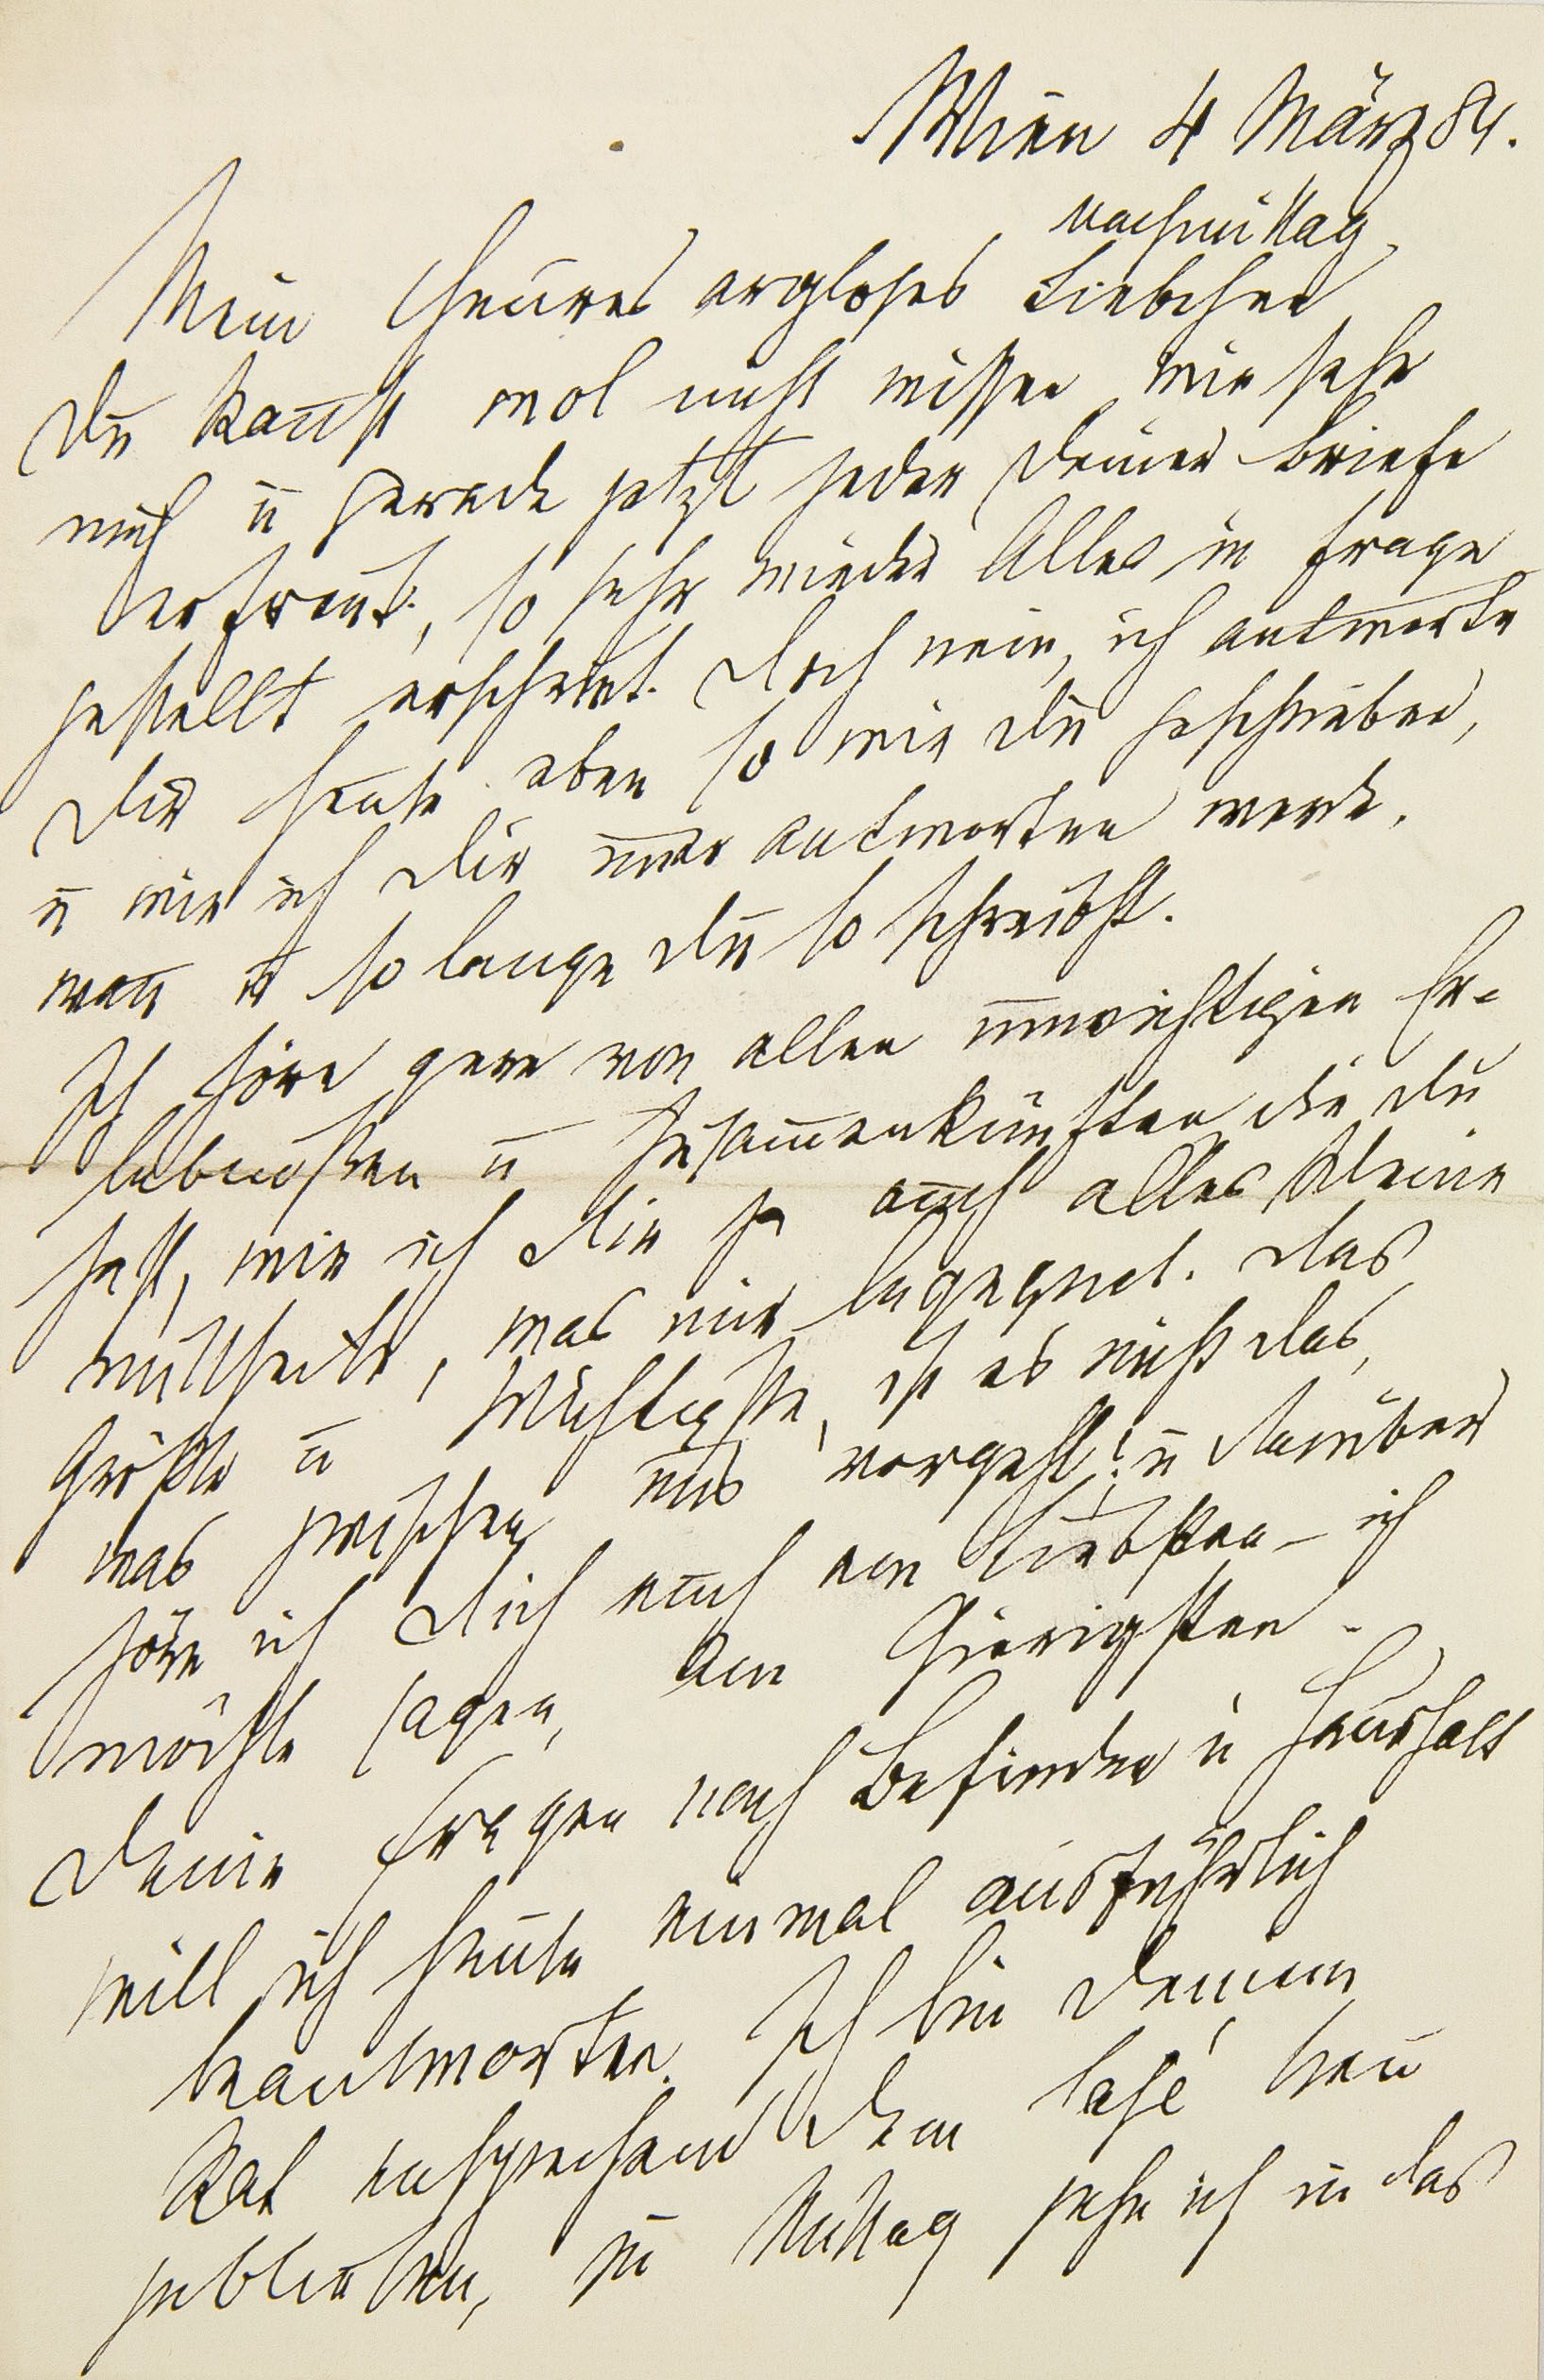 Wien 4 März 84.
nachmittag.
Mein theures argloses Liebchen
Du kan̄st wol nicht wissen wie sehr
mich u gerade jetzt jeder Deiner Briefe
erfreut, so sehr wieder Alles in Frage
gestellt erscheint. Doch nein, ich antworte
Dir heute eben so wie Du geschrieben,
u wie ich Dir im̄er antworten werde,
wan̄ u so lange Du so schreibst.
Ich höre gern von allen unwichtigen Er-
lebnißen u Zusam̄enkünften die Du
hast, wie ich Dir ja auch alles Kleine
mittheile, was mir begegnet. Das
Größte u Wichtigste, ist es nicht das,
was zwischen uns vorgeht? u darüber
höre ich Dich auch am Liebsten – ich
möchte sagen, am Gierigsten.
Deine Fragen nach Befinden u Haushalt
will ich heute einmal ausführlich
beantworten. Ich bin Deinem
Rat entsprechend dem Café treu
geblieben, zu Mittag gehe ich in das